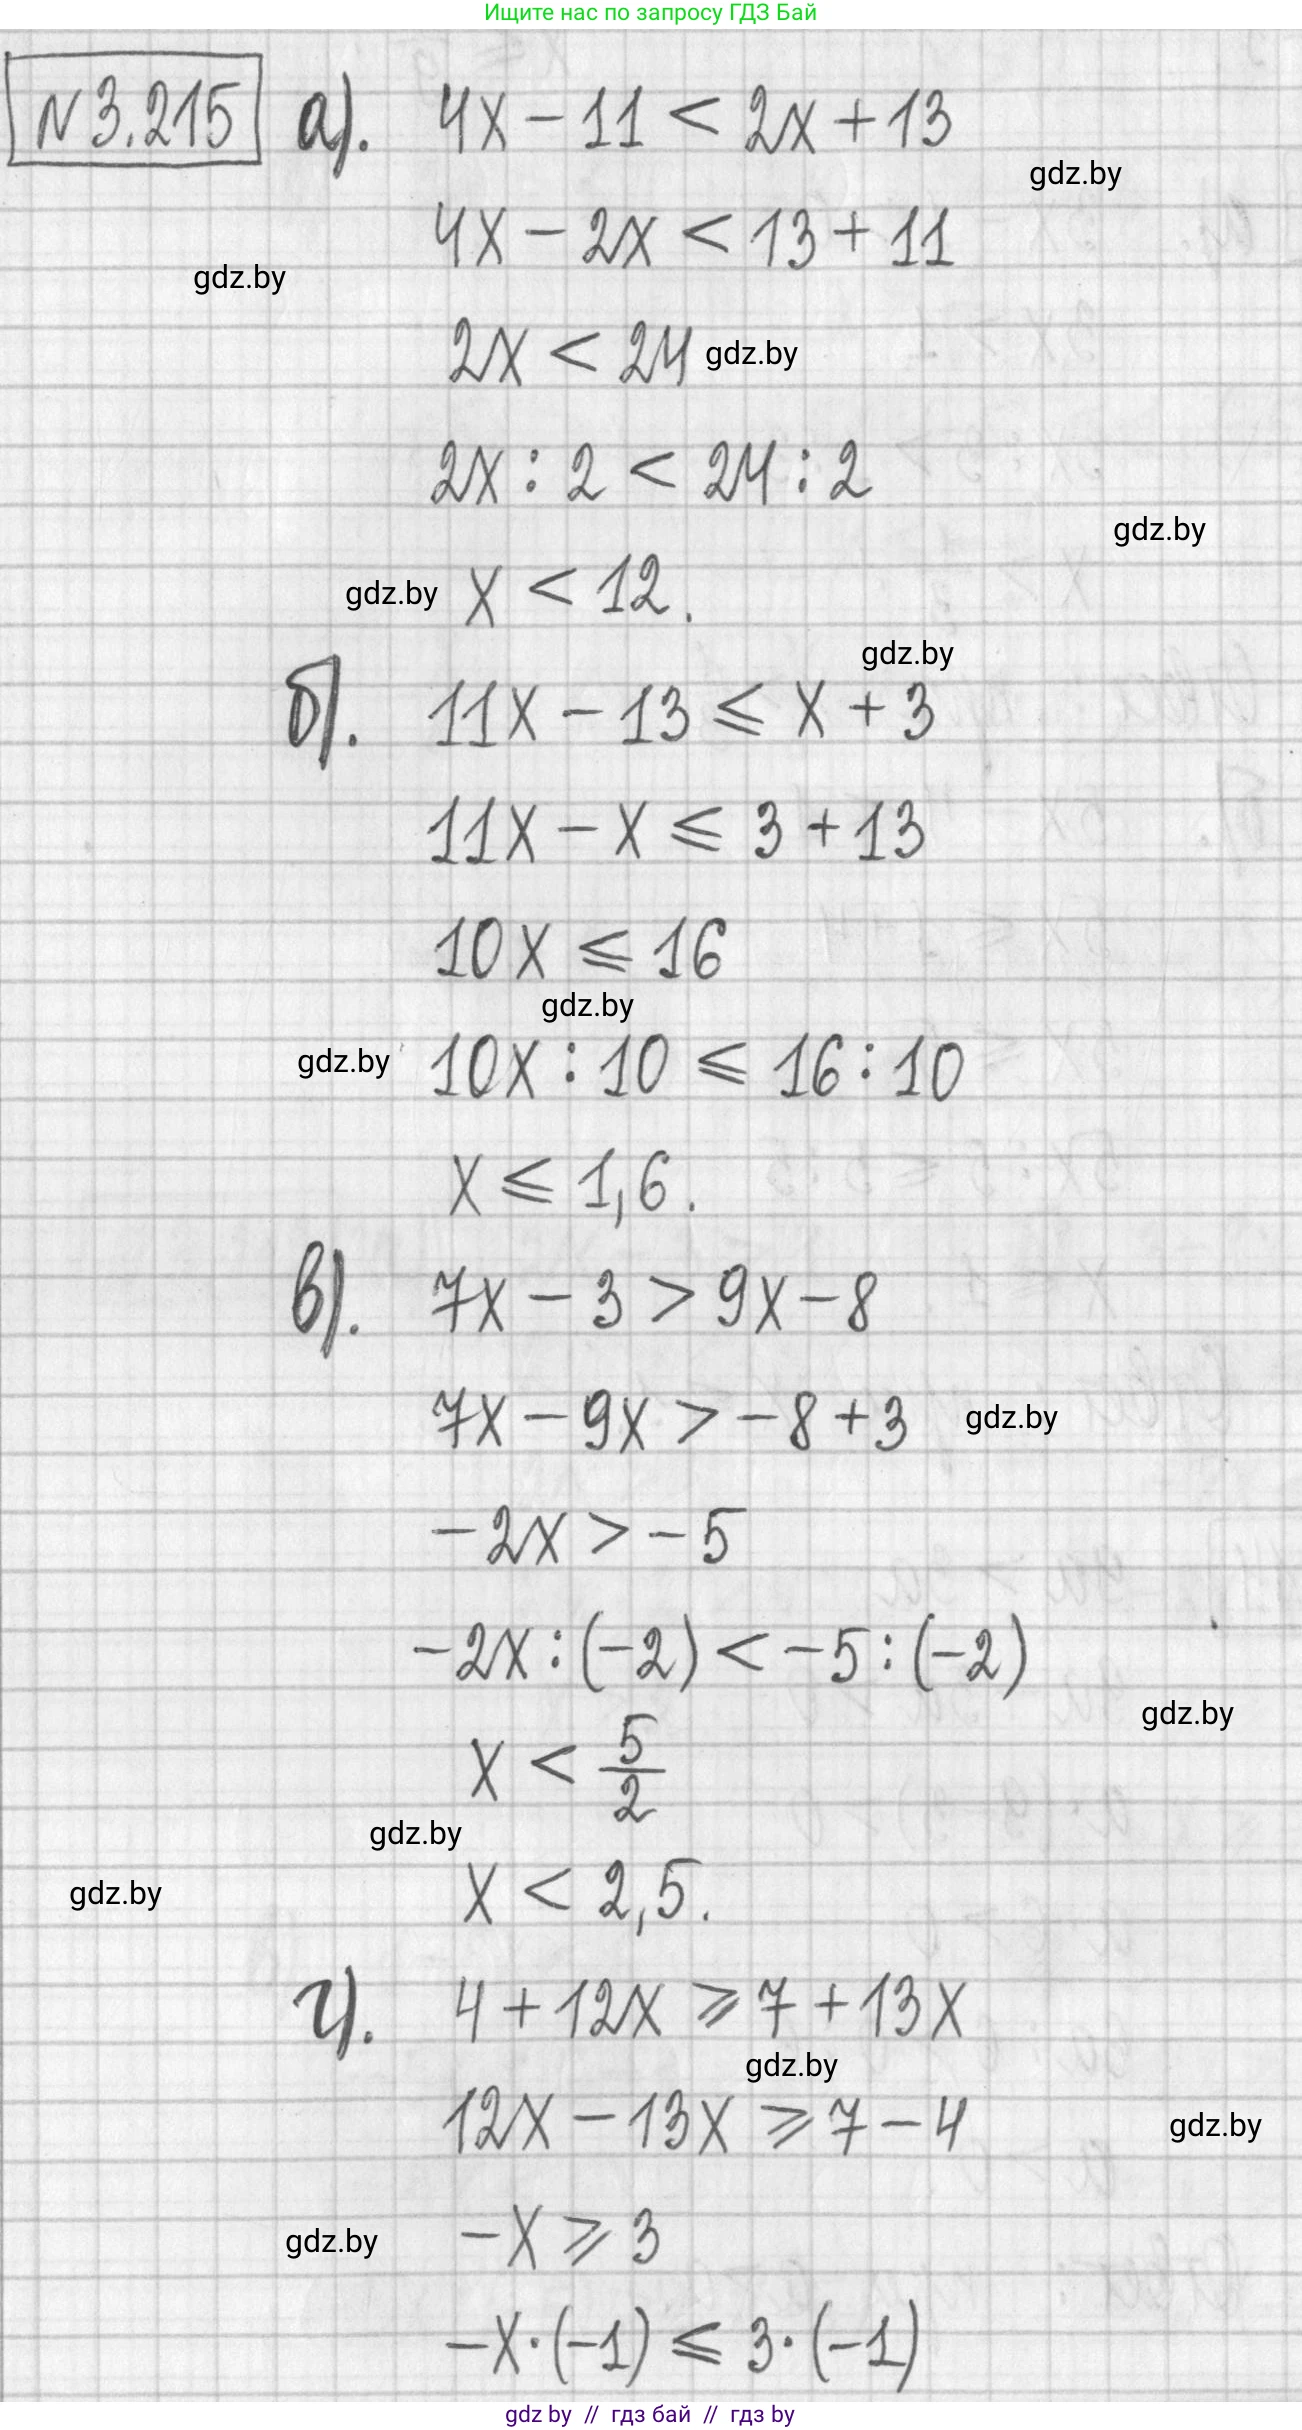 Ищите нас по запросу ГДЗ Бай
N 3.215 а). 4x - 11 < 2x + 13
gdz.by
4x - 2x < 13 + 11
gdz.by
2x < 24 gdz.by
2x : 2 < 24 : 2
gdz.by
gdz.by x < 12.
gdz.by
б). 11x - 13 ⩽ x + 3
11x - x ⩽ 3 + 13
10x ⩽ 16
gdz.by
gdz.by 10x : 10 ⩽ 16 : 10
x ⩽ 1,6.
в). 7x - 3 > 9x - 8
7x - 9x > -8 + 3 gdz.by
-2x > -5
-2x : (-2) < -5 : (-2)
gdz.by
x < 5/2
gdz.by
gdz.by x < 2,5.
г). 4 + 12x ⩾ 7 + 13x
gdz.by
12x - 13x ⩾ 7 - 4 gdz.by
gdz.by -x ⩾ 3
-x · (-1) ⩽ 3 · (-1)
gdz by // гдз бай // гдз by